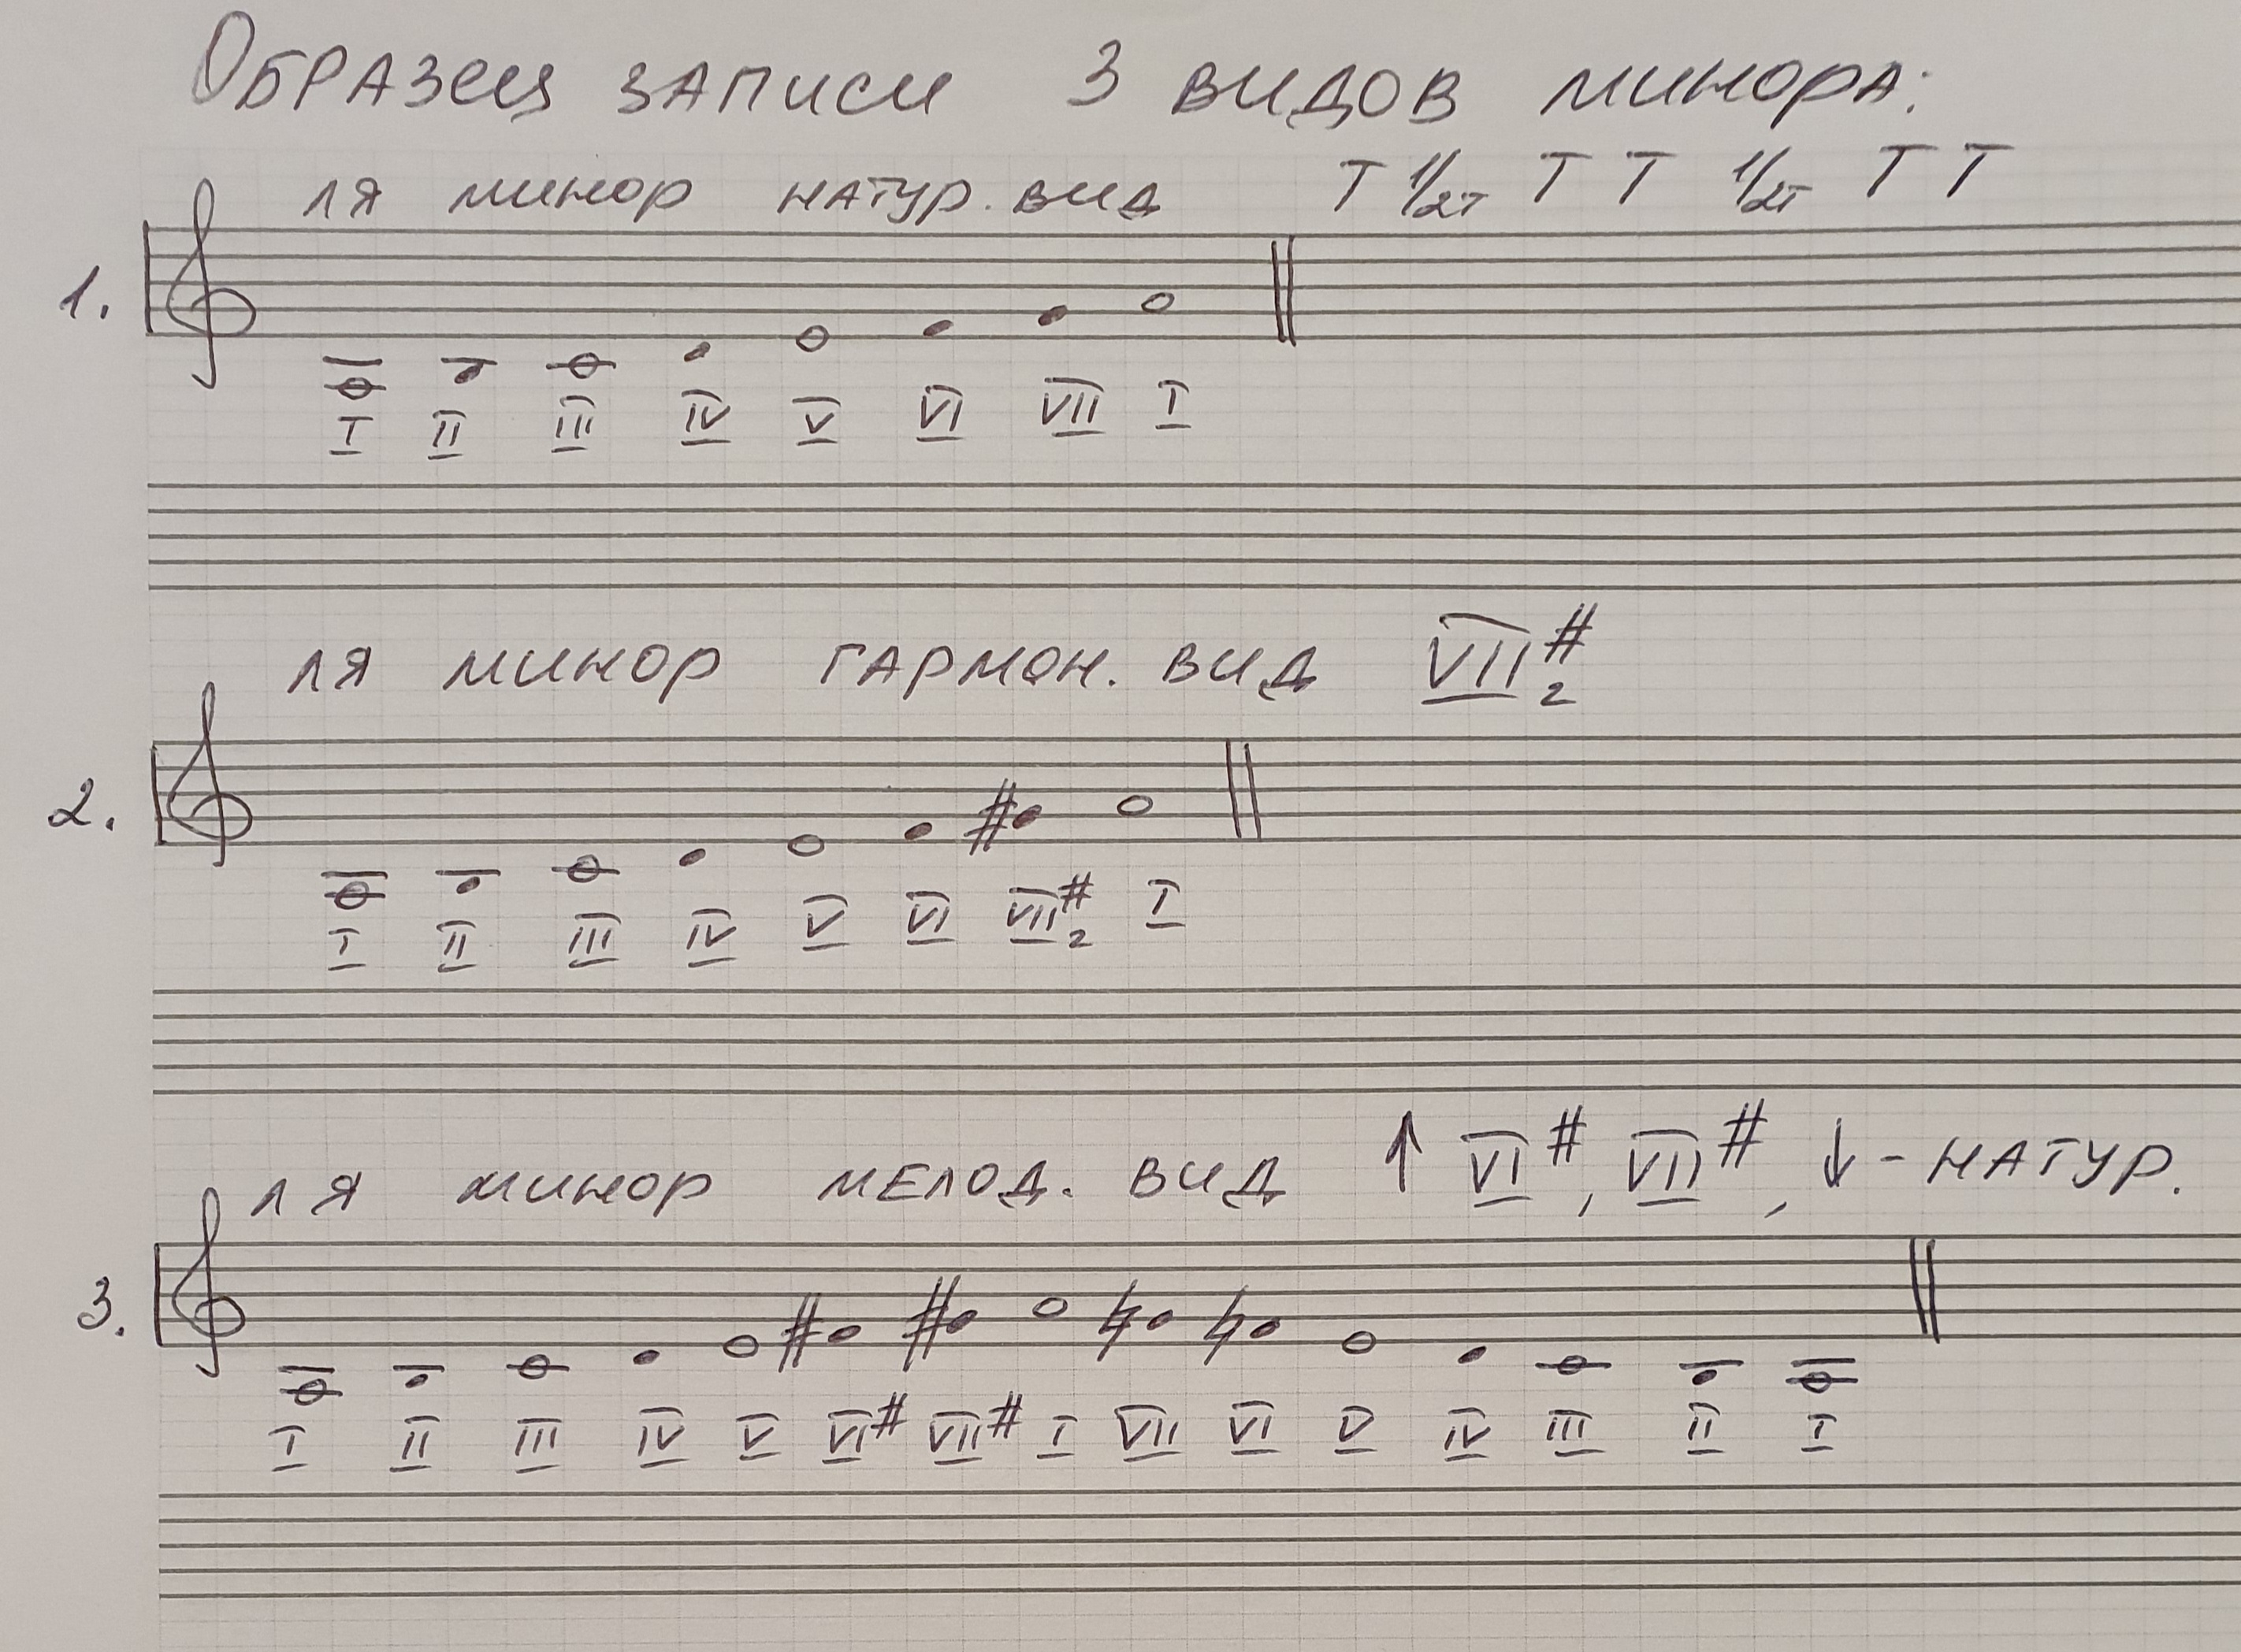 Образец записи 3 видов минора:
ля минор натур. вид Т 1/2т Т Т 1/2т Т Т
1.
I II III IV V VI VII I
ля минор гармон. вид VII#г
2.
I II III IV V VI VII#г I
ля минор мелод. вид ↑ VI#, VII#, ↓ - натур.
3.
I II III IV V VI# VII# I VII VI V IV III II I